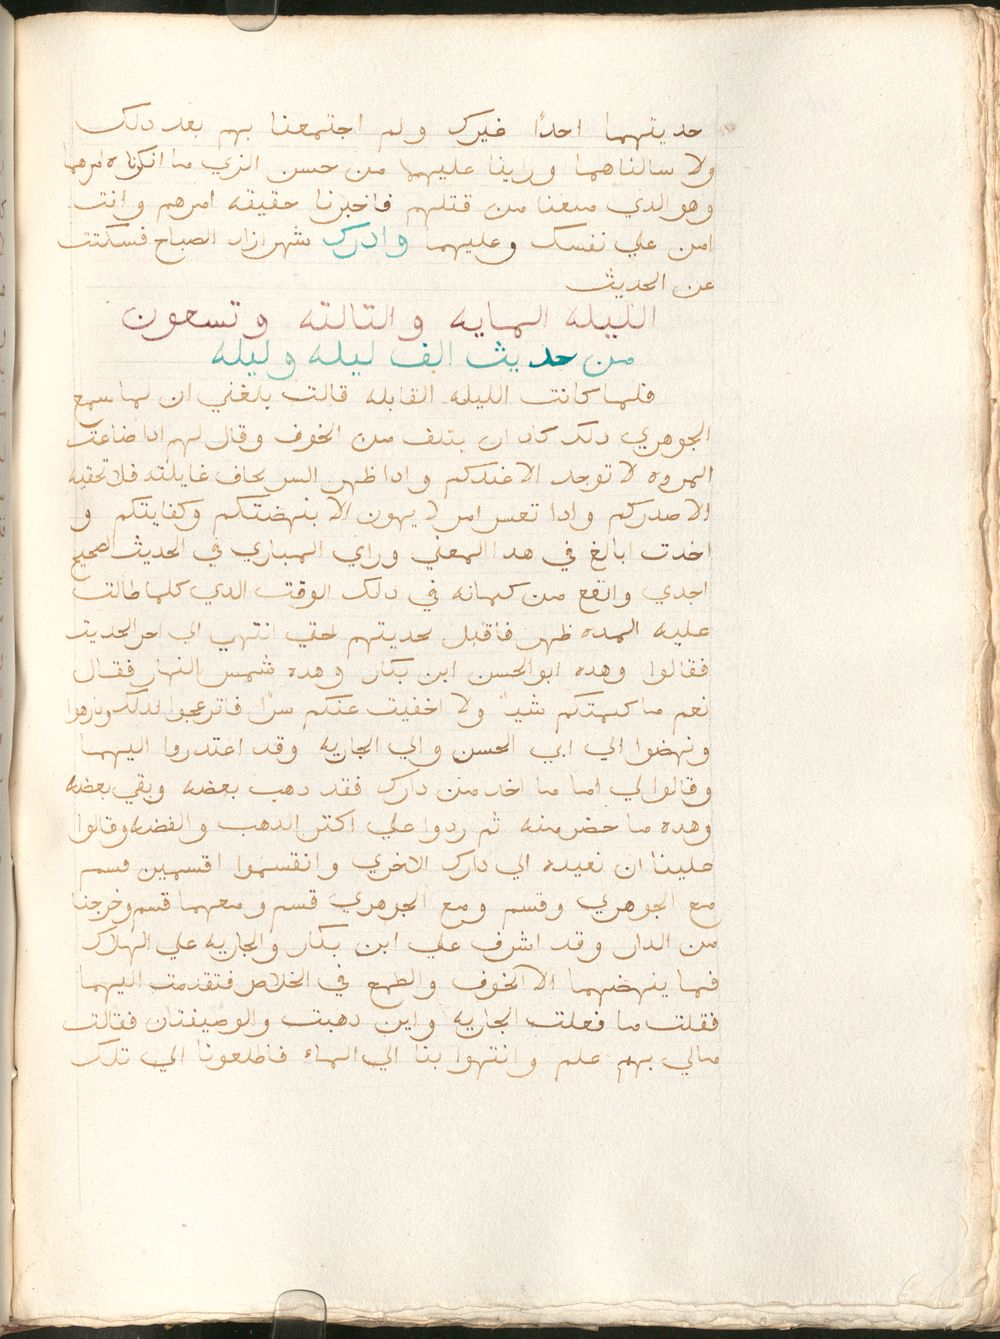 حديتهما احدًا غيرك ولم اجتمعنا بهم بعد دلك
ولا سالناهما وراينا عليهما من حسن الزي ما انكرناه امرهما
وهو الدي منعنا من قتلهم فاخبرنا حقيقه امرهم وانت
امن علي نفسك وعليهما وادرك شهرازاد الصباح فسكتت
عن الحديث
الليله المايه والتالته وتسعون
من حديث الف ليله وليله
فلما كانت الليله القابله قالت بلغني ان لما سمع
الجوهري دلك كاد ان يتلف من الخوف وقال لهم ادا ضاعت
المروه لا توجد الا عندكم وادا ظهر السر يخاف غايلته فلا تخفيه
الا صدركم وادا تعسر امر لا يهون الا بنهضتكم وكفايتكم و
اخدت ابالغ في هدا المعني وراي المباري في الحديث الصحيح
اجدي وانفع من كتمانه في دلك الوقت الدي كلما طالت
عليه المده ظهر فاقبل يحديتهم حتي انتهي الي اخر الحديت
فقالوا وهده ابو الحسن ابن بكار وهده شمس النهار فقال
نعم ما كتمتكم شياً ولا اخفيت عنكم سرًا فانزعجوا لدلك
ونهضوا الي ابي الحسن والي الجاريه وقد اعتدروا اليهما
وقالوا لي اما ما اخد من دارك فقد دهب بعضه وبقي بعضه
وهده ما حضر منه ثم ردوا علي اكتر الدهب والفضه وقالوا
علينا ان نعيده الي دارك الاخري وانقسموا اقسمين قسم
مع الجوهري وقسم ومع الجوهري قسم ومعهما قسم وخرجنا
من الدار وقد اشرف علي ابن بكار والجاريه علي الهلاك
فما ينهضهما الا الخوف والطمع في الخلاص فتقدمت اليهما
فقلت ما فعلت الجاريه واين دهبت والوصيفتان فقالت
مالي بهم علم وانتهوا بنا الي الماء فاطلعونا الي تلك